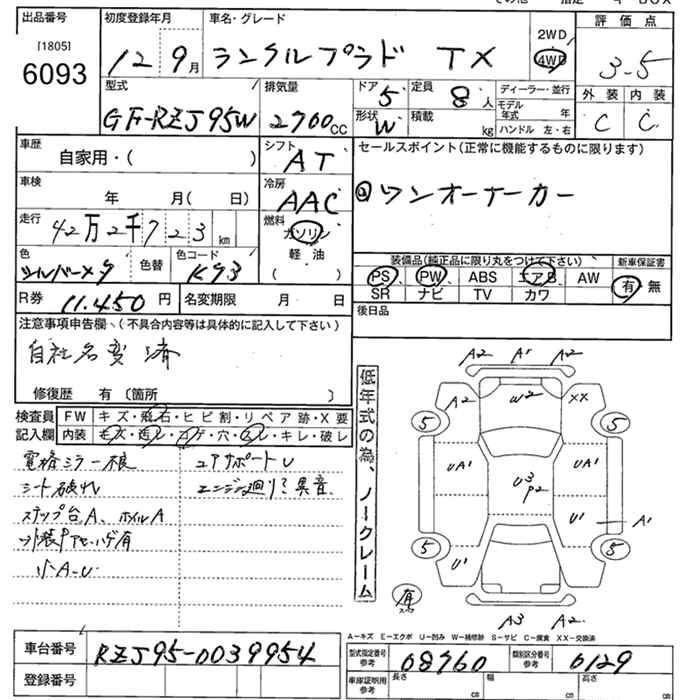 出品番号
[1805]
6093
初度登録年月
12 9月
車名・グレード
ランクルプラド TX
2WD
4WD
評価点
3-5
型式
GF-RZJ95W
排気量
2700cc
ドア 5
形状 W
定員 8 人
積載 kg
ディーラー・並行
モデル年式 年
ハンドル 左・右
外装 内装
C C
車歴
自家用・( )
シフト
AT
セールスポイント(正常に機能するものに限ります)
ワンオーナーカー
車検
年 月( 日)
冷房
AAC
走行
42万2千723km
燃料
ガソリン
軽油
( )
色
シルバーメタ
色替
色コード
K93
装備品(純正品に限り丸をつけて下さい)
新車保証書
PS PW ABS エアB AW
有・無
SR ナビ TV カワ
R券 11.450円
名変期限 月 日
後日品
注意事項申告欄、(不具合内容等は具体的に記入して下さい)
自社名変済
修復歴 有(箇所 )
検査員記入欄
FW キズ・飛石・ヒビ割・リペア跡・X要
内装 キズ・汚レ・コゲ・穴・スレ・キレ・破レ
電格ミラー不良
シート破れ
ステップ台A、ホイルA
外装PアセハゲA有
小A-U
エアサポートU
エンジン廻り?異音
低年式の為、ノークレーム
A2 A1 A2
A2 W2 XX
5 5
UA1 U3 P2 UA1
U1 A1
5 5
U1
有
A3 A2
A-キズ E-エクボ U-凹み W-補修跡 S-サビ C-腐食 XX-交換済
車台番号 RZJ95-0039954
登録番号
型式指定番号 参考 08960
類別区分番号 参考 6129
車庫証明用 参考
長さ cm
幅 cm
高さ cm